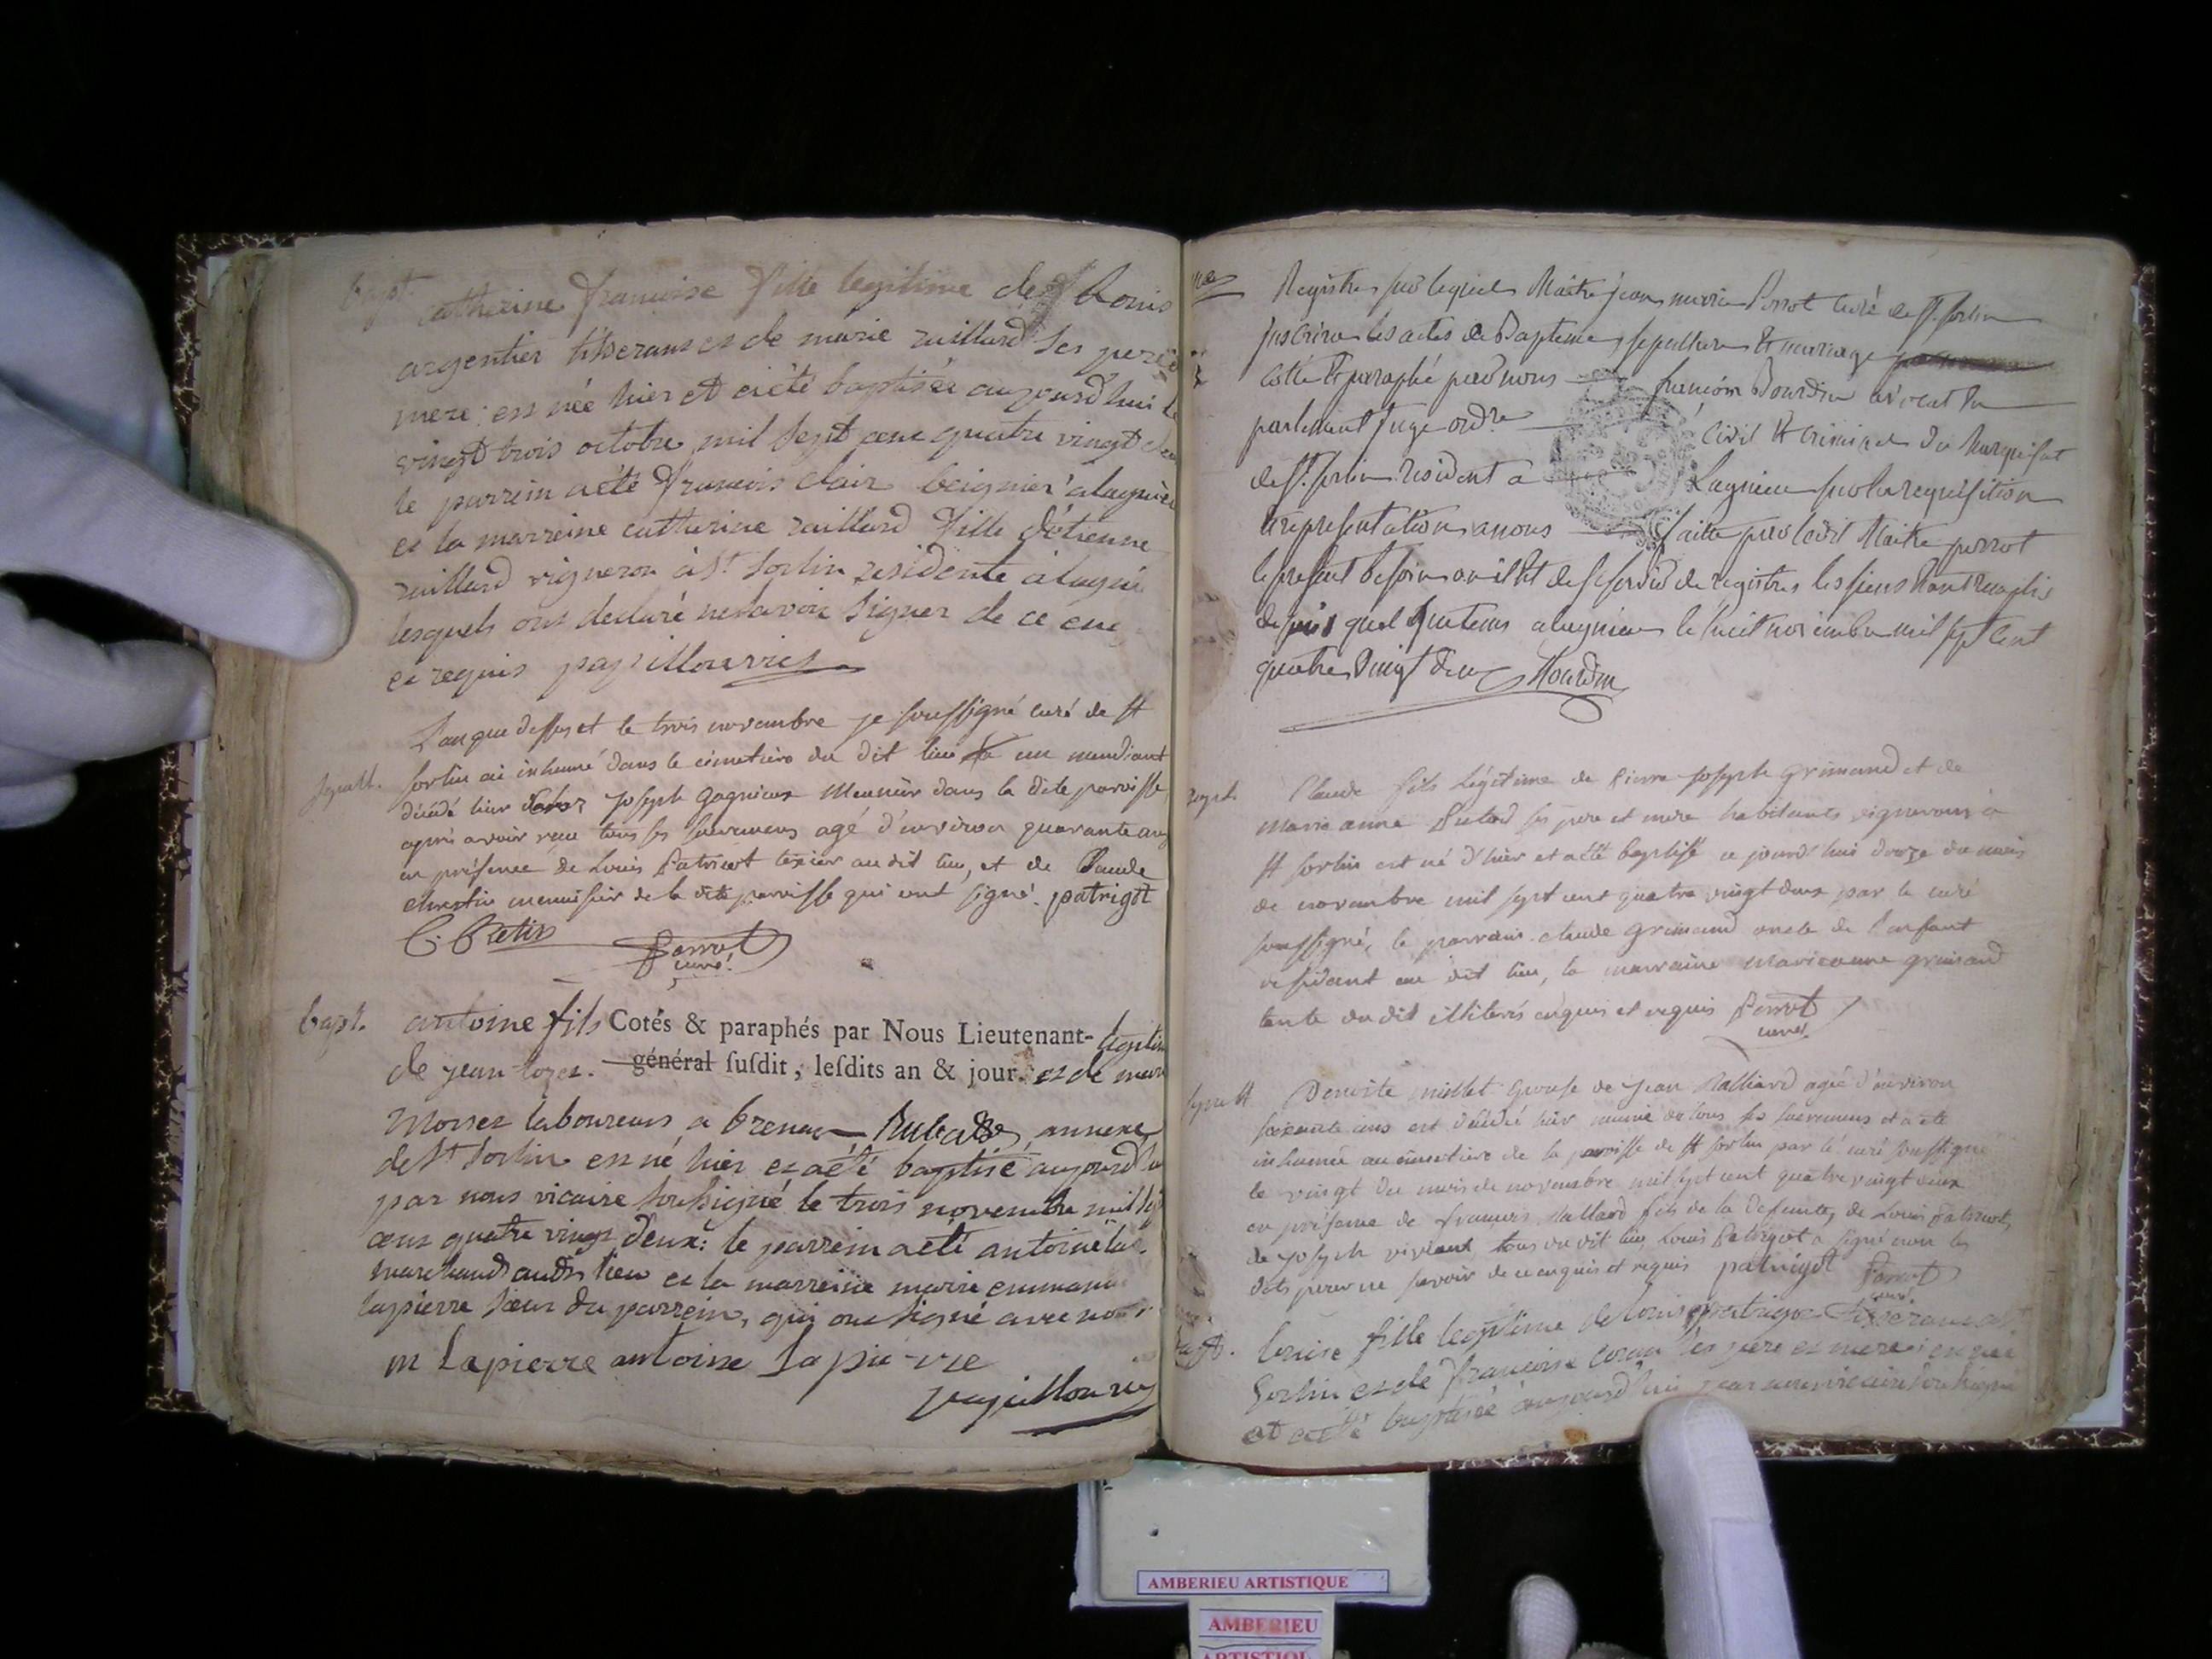 bapt. catherine françoise fille legitime de Louis
argentier tisserans et de marie raillard ses pere
mere: est née hier et a été baptisée aujourdhui le
vingt trois octobre mil sept cens quatre vingt
le parrein a été françois clair
et la marreine catherine raillard fille d'etienne
raillard vigneron à St Sorlin residente a
lesquels ons declaré ne savoir signer de ce
et requis
L'an que dessus et le trois novembre je soussigné curé de St
Sepult. sorlin ai inhumé dans le cimetière du dit lieu un mendiant
décédé hier chez joseph Meunier dans la dite paroisse
après avoir reçu tous ses sacremens agé d'environ quarante ans
en présence de Louis Patricot texier au dit lieu, et de Claude
menuisier de la dite paroisse qui ont signé. patrigot
Perrot
curé.
bapt. antoine fils Cotés & paraphés par Nous Lieutenant- legitim
de jean loyes. général ſuſdit, leſdits an & jour. et de mar
laboureurs a annexe
de St Sorlin est né hier et a été baptisé aujourd'hu
par nous vicaire soussigné le trois novembre mil sep
cens quatre vings deux: le parrein a été antoine
marchands audt lieu et la marreine marie
lapierre sœur du parrein, qui ons signé avec nous
m Lapierre antoine Lapierre
Registre sur lequel Maitre jean marie Perrot Curé de St. Sorlin
Inscrira les actes de Bapteme, sepulture & mariage
cotté & paraphé par nous françois Bourdin avocat En
parlement Juge ordre civil & criminel du Marquisat
de St. Sorlin résident a Lagnieu sur la requisition
& representation a nous faitte par ledit Maitre perrot
le present de se servir de registres les siens Etant remplis
depuis quelque tems a Lagnieu le huit novembre mil sept Cent
quatre Vingt deux Bourdin
bapt. Claude fils légitime de Pierre joseph grimand et de
Marie anne ses pere et mere habitants vignerons à
St sorlin est né d'hier et a été baptisé ce jourd'hui douze du mois
de novembre mil sept cent quatre vingt deux par le curé
soussigné, le parrain claude grimand oncle de l'enfant
résidant au dit lieu, la marraine marieanne grimand
tante du dit illiterés enquis et requis Perrot
curé.
Sepult. Benoite millet epouse de jean Ralliard agée d'environ
soixante ans est décédée hier munie de tous ses sacremens et a été
inhumée au cimetière de la paroisse de St sorlin par le curé soussigné
le vingt du mois de novembre mil sept cent quatre vingt deux
en présence de françois fils de la defunte, de Louis Patricot,
de joseph vivient tous du dit lieu, Louis Patrigot a signé non les
dits pour ne savoir de ce enquis et requis patrigot Perrot
curé.
bapt. louise fille legitime de louis patrigot tisserans a St
Sorlin et de françoise ses pere et mere: est née
et a été baptisée aujourd'hui par nous vicaire soussigné
AMBERIEU ARTISTIQUE
AMBERIEU
ARTISTIQUE